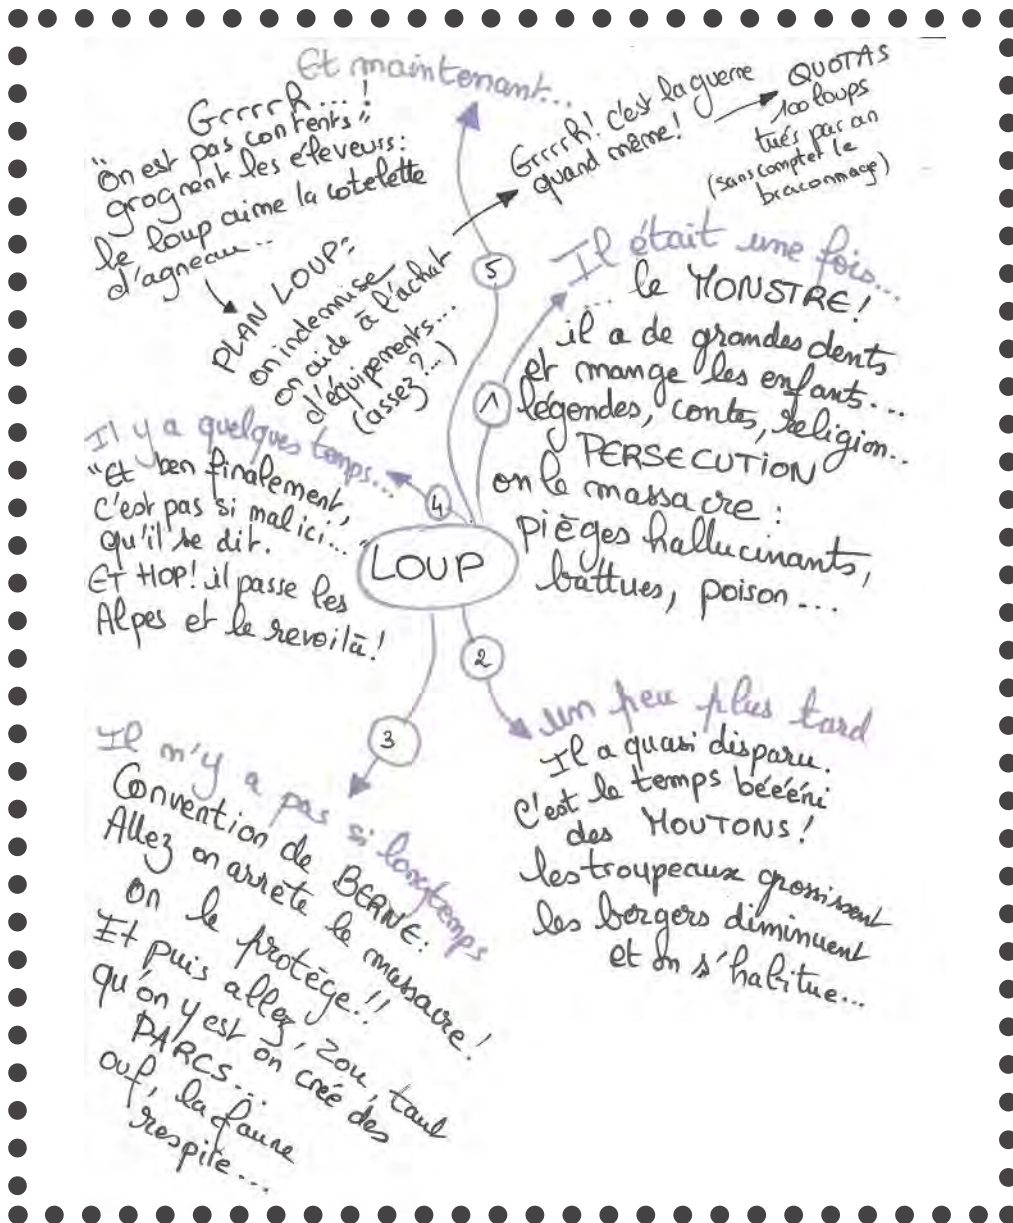 LOUP
1
Il était une fois...
... le MONSTRE!
il a de grandes dents
et mange les enfants...
légendes, contes, religion...
PERSECUTION
on le massacre :
pièges hallucinants,
battues, poison...
2
un peu plus tard
Il a quasi disparu.
C'est le temps bééééni
des MOUTONS!
les troupeaux grossissent
les bergers diminuent
et on s'habitue...
3
Il n'y a pas si longtemps
Convention de BERNE:
Allez on arrête le massacre!
on le protège!!
Et puis allez, zou, tant
qu'on y est on crée des
PARCS...
ouf, la faune
respire...
4
Il y a quelques temps...
"Et ben finalement,
c'est pas si mal ici..."
qu'il se dit.
ET HOP! il passe les
Alpes et le revoilà!
5
Et maintenant...
Grrrrh...!
"on est pas contents",
grognent les éleveurs:
le loup aime la cotelette
d'agneau...
PLAN LOUP:
on indemnise
on aide à l'achat
d'équipements...
(assez?...)
Grrrrh! c'est la guerre
quand même!
QUOTAS
100 loups
tués par an
(sans compter le
braconnage)